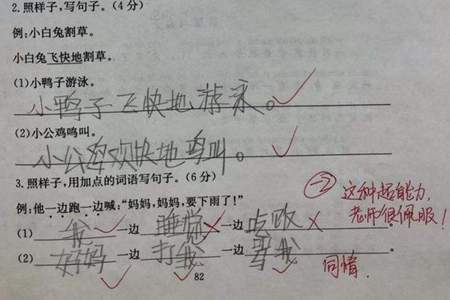 2.照样子,写句子。(4分)
例:小白兔割草。
小白兔飞快地割草。
(1)小鸭子游泳。
小鸭子飞快地游泳。
(2)小公鸡鸣叫。
小公鸡欢快地鸣叫。
3.照样子,用加点的词语写句子。(6分)
例:他一边跑一边喊:“妈妈,妈妈,要下雨了!”
(1) 我 一边 睡觉 一边 吃饭
(2) 妈妈 一边 打我 一边 骂我
-2 这种超能力,
老师很佩服!
同情.
82